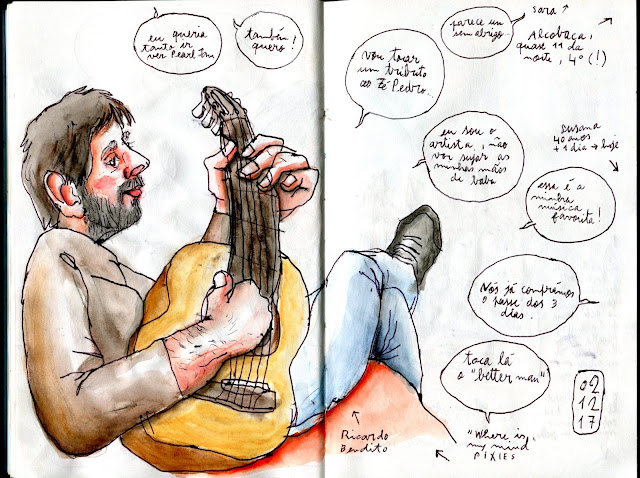 eu queria
tanto ir
ver Pearl Jam
também
quero!
parece um
sem abrigo...
Sara ↑
Alcobaça,
quase 11 da
noite, 4º (!)
vou tocar
um tributo
ao Zé Pedro...
eu sou o
artista, não
vou sujar as
minhas mãos
de baba
Susana
40 anos
+ 1 dia → hoje
essa é a
minha
música
favorita!
Nós já comprámos
o passe dos 3
dias.
toca lá
o "better man"
02
12
17
Ricardo
Bendito
"Where is
my mind
PIXIES